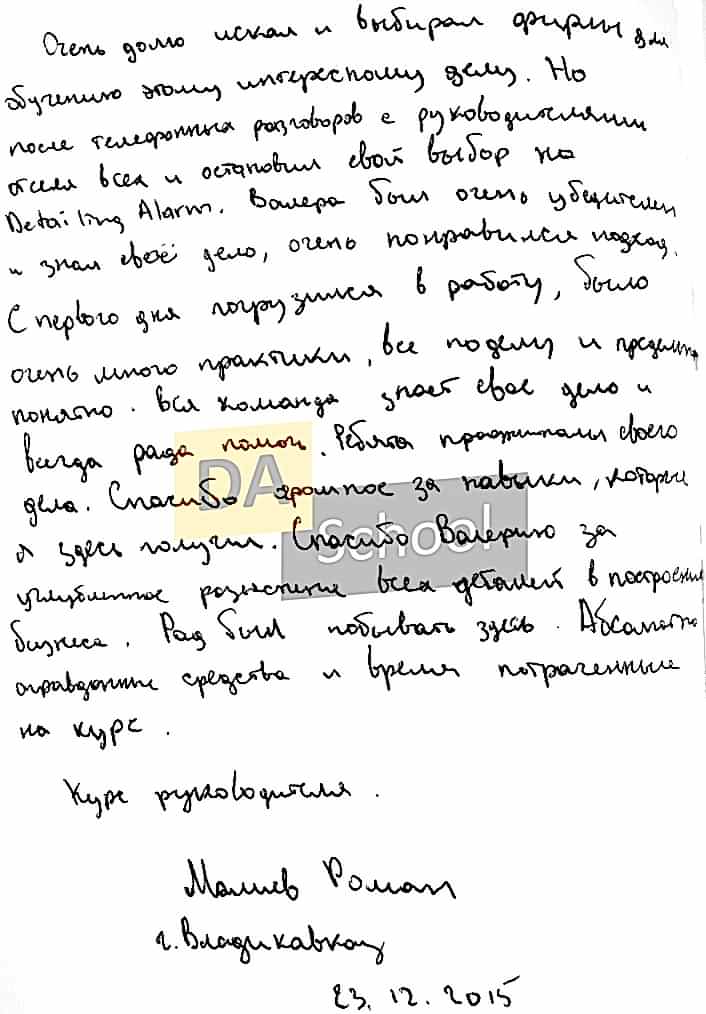 Очень долго искал и выбирал фирмы для
обучению этому интересному делу. Но
после телефонных разговоров с руководителями
отсеял всех и остановил свой выбор на
Detailing Alarm. Валера был очень убедителен
и знал своё дело, очень понравился подход.
С первого дня погрузился в работу, было
очень много практики, все по делу и предельно
понятно. Вся команда знает свое дело и
всегда рада помочь. Ребята своего
дела. Спасибо огромное за навыки, которые
я здесь получил. Спасибо Валерию за
углубленное разъяснение всех деталей в построении
бизнеса. Рад был побывать здесь. Абсолютно
оправданные средства и время потраченные
на курс.
Курс руководителя.
Малиев Роман
г. Владикавказ
23.12.2015
DA
School